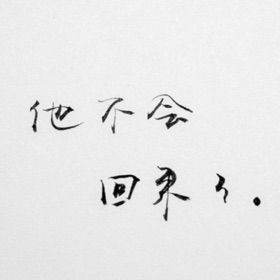 他不会
回来了.